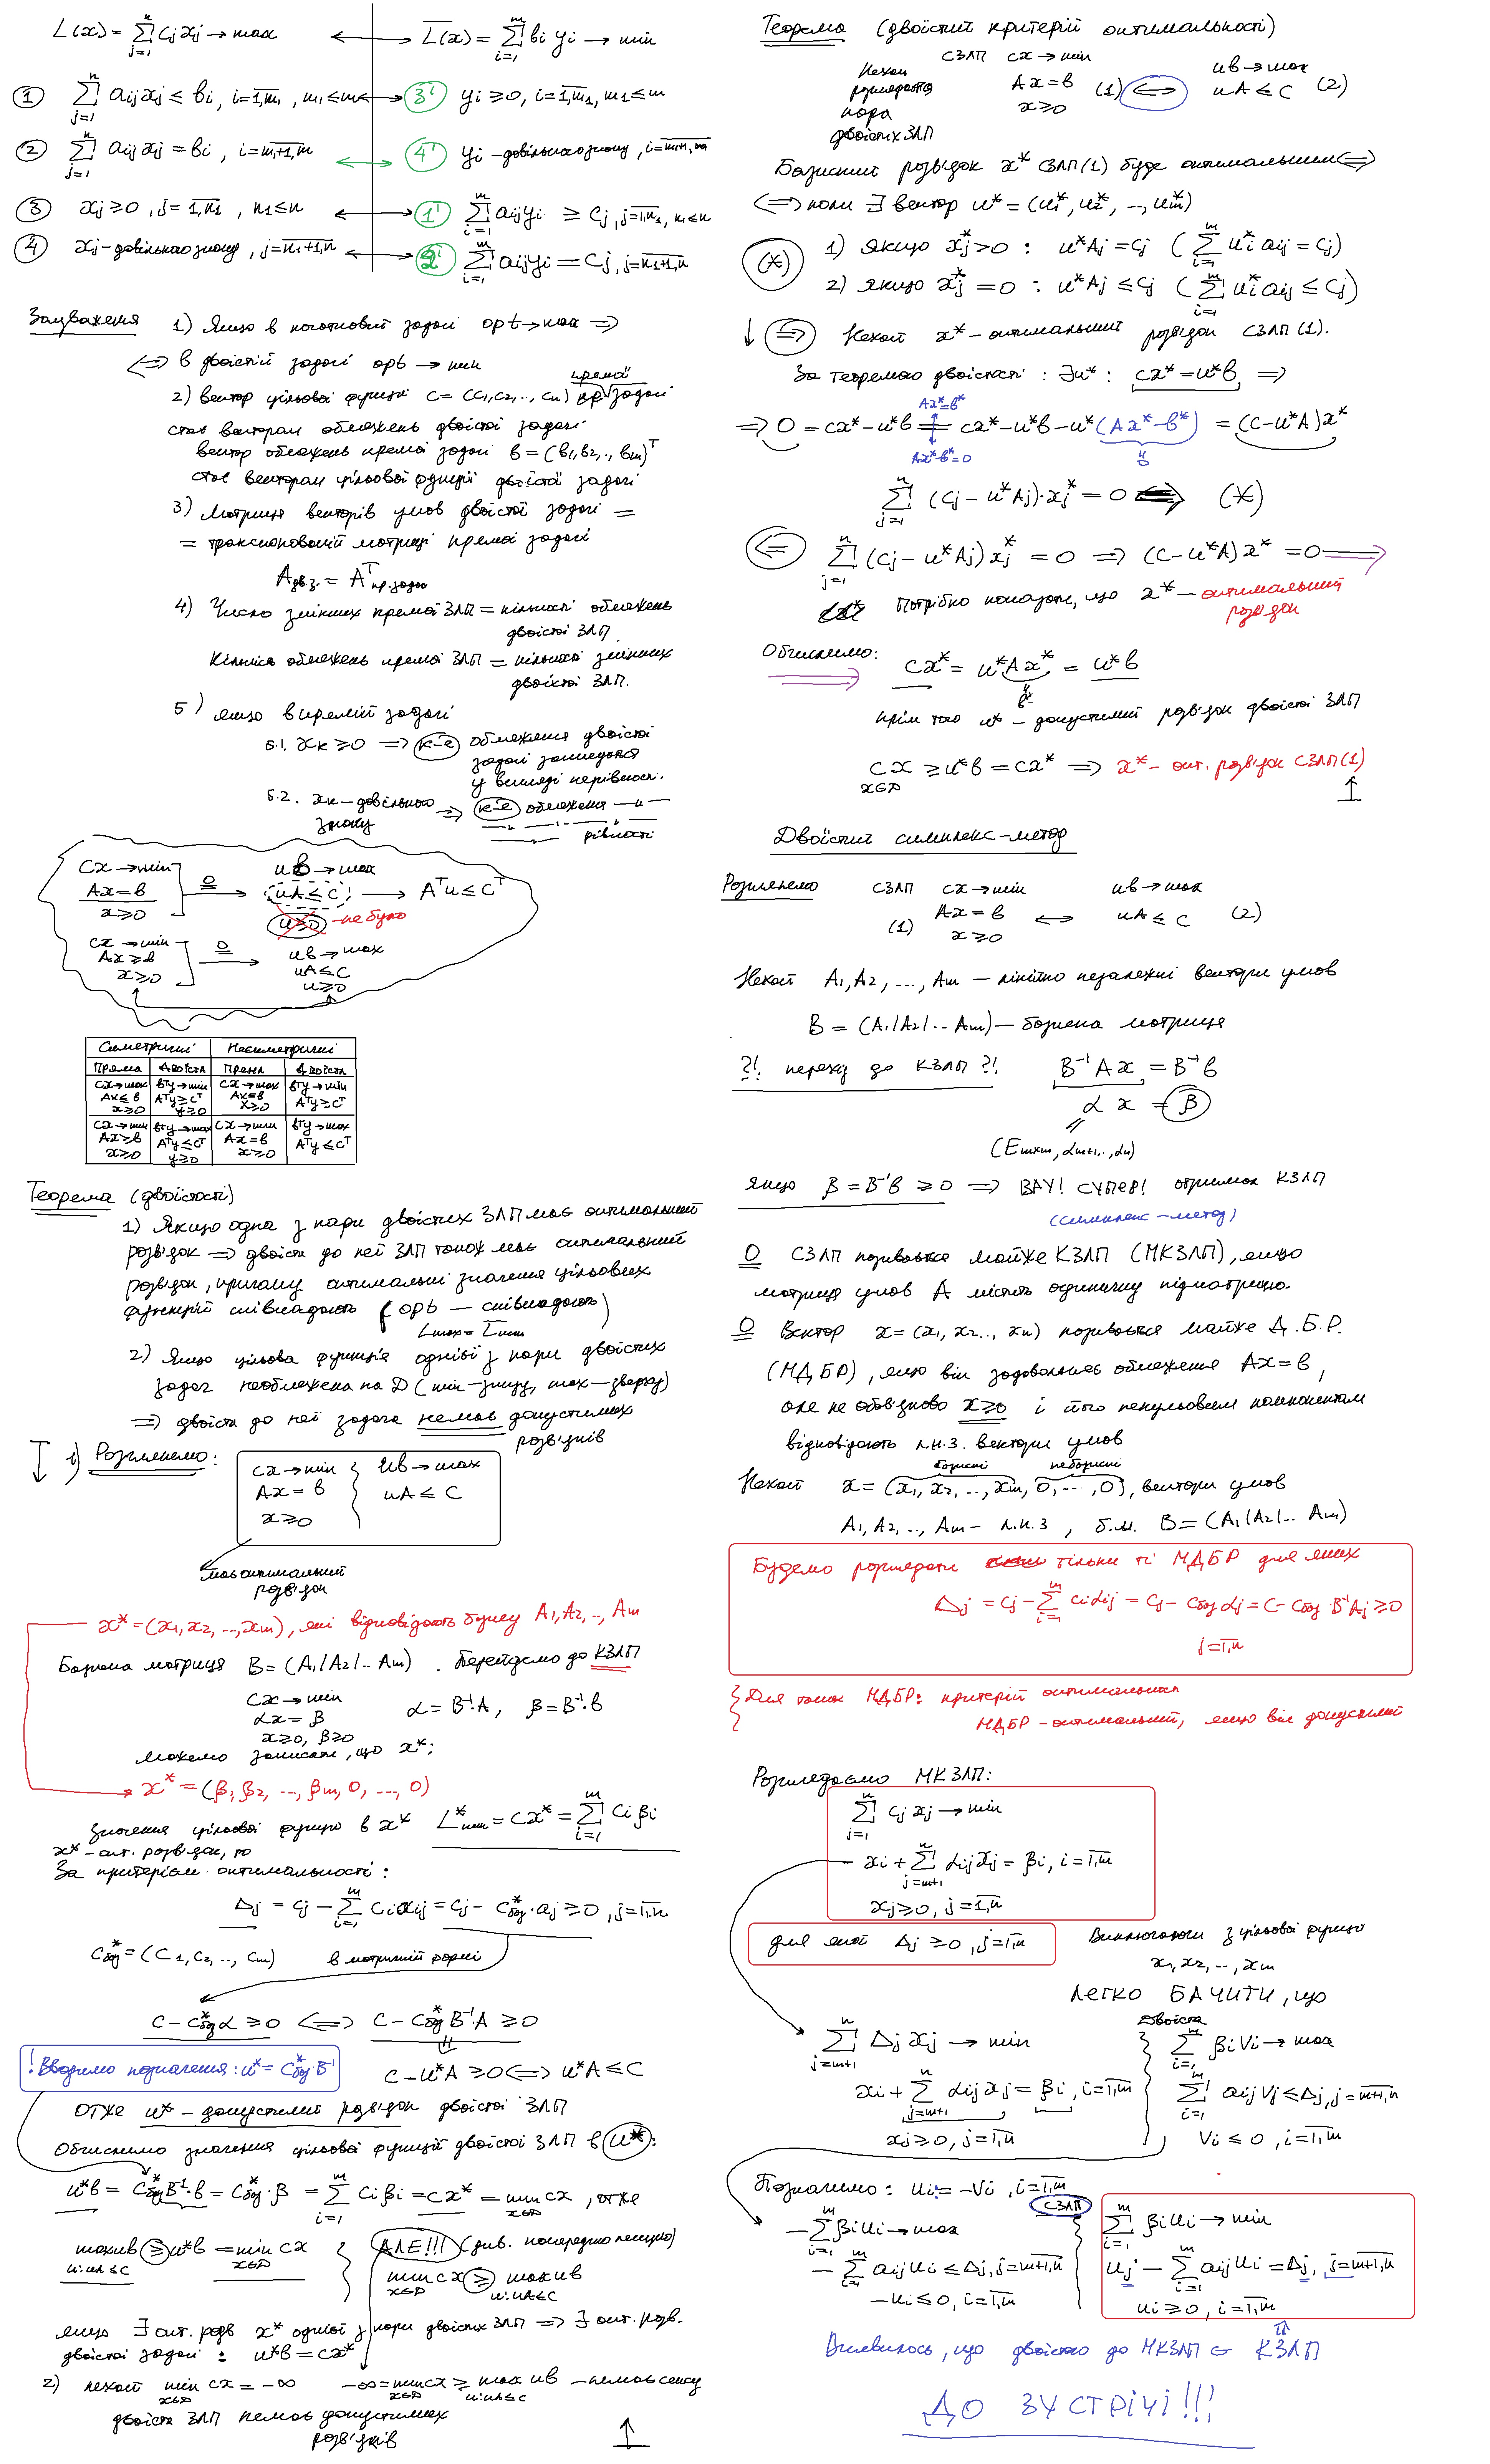 L(x) = ∑_{j=1}^{n} cⱼxⱼ → max ⟷ L̅(x) = ∑_{i=1}^{m} bᵢyᵢ → min
① ∑_{j=1}^{n} aᵢⱼxⱼ ≤ bᵢ, i=1,m₁, m₁≤m ⟷ ③' yᵢ ≥ 0, i=1,m₁, m₁≤m
② ∑_{j=1}^{n} aᵢⱼxⱼ = bᵢ, i=m₁+1,m ⟷ ④' yᵢ – довільного знаку, i=m₁+1,m
③ xⱼ ≥ 0, j=1,n₁, n₁≤n ⟷ ①' ∑_{i=1}^{m} aᵢⱼyᵢ ≥ cⱼ, j=1,n₁, n₁≤n
④ xⱼ – довільного знаку, j=n₁+1,n ⟷ ②' ∑_{i=1}^{m} aᵢⱼyᵢ = cⱼ, j=n₁+1,n
Зауваження 1) Якщо в початковій задачі opt → max ⟹
⟺ в двоїстій задачі opt → min
2) вектор цільової функції c = (c₁,c₂,..,cₙ) прямої задачі
стає вектором обмежень двоїстої задачі
вектор обмежень прямої задачі b = (b₁,b₂,.,bₘ)ᵀ
стає вектором цільової функції двоїстої задачі
3) Матриця векторів умов двоїстої задачі =
= транспонованій матриці прямої задачі
A дв.з. = Aᵀ пр.задачі
4) Число змінних прямої ЗЛП = кількості обмежень
двоїстої ЗЛП
Кількість обмежень прямої ЗЛП = кількості змінних
двоїстої ЗЛП.
5) якщо в прямій задачі
5.1. xₖ ≥ 0 ⟹ k-е обмеження двоїстої
задачі записується
у вигляді нерівності.
5.2. xₖ – довільного знаку ⟹ k-е обмеження —"—
—"— рівності
cx → min ub → max
Ax = b O⟶ uA ≤ c ⟶ Aᵀu ≤ cᵀ
x ≥ 0 u≥0 – не було
cx → min O⟶ ub → max
Ax ≥ b uA ≤ c
x ≥ 0 u ≥ 0
Симетричні | Несиметричні
Пряма | Двоїста | Пряма | Двоїста
cx→max | bᵀy→min | cx→max | bᵀy→min
Ax≤b | Aᵀy≥cᵀ | Ax=b | Aᵀy≥cᵀ
x≥0 | y≥0 | x≥0
cx→min | bᵀy→max | cx→min | bᵀy→max
Ax≥b | Aᵀy≤cᵀ | Ax=b | Aᵀy≤cᵀ
x≥0 | y≥0 | x≥0
Теорема (двоїстості)
1) Якщо одна з пари двоїстих ЗЛП має оптимальний
розв'язок ⟹ двоїста до неї ЗЛП також має оптимальний
розв'язок, причому оптимальні значення цільових
функцій співпадають (opt – співпадають)
Lmax = L̅min
2) Якщо цільова функція однієї з пари двоїстих
задач необмежена на D (min – знизу, max – зверху)
⟹ двоїста до неї задача немає допустимих
розв'язків
1) Розглянемо: cx → min ub → max
Ax = b uA ≤ c
x ≥ 0
має оптимальний
розв'язок
x* = (x₁,x₂,..,xₘ), які відповідають базису A₁,A₂,..,Aₘ
Базисна матриця B = (A₁|A₂|..Aₘ). Перейдемо до КЗЛП
cx → min
αx = β α = B⁻¹·A, β = B⁻¹·b
x≥0, β≥0
можемо записати, що x*:
x* = (β₁,β₂,..,βₘ,0,...,0)
Значення цільової функції в x* L*min = cx* = ∑_{i=1}^{m} cᵢβᵢ
x* – опт. розв'язок, то
За критерієм оптимальності:
Δⱼ = cⱼ – ∑_{i=1}^{m} cᵢαᵢⱼ = cⱼ – c*баз·αⱼ ≥ 0, j=1,n
c*баз = (c₁,c₂,..,cₘ) в матричній формі
c – c*баз α ≥ 0 ⟺ c – c*баз B⁻¹·A ≥ 0
! Вводимо позначення: u* = c*баз·B⁻¹ c – u*A ≥ 0 ⟺ u*A ≤ c
Отже u* – допустимий розв'язок двоїстої ЗЛП
Обчислимо значення цільової функції двоїстої ЗЛП в u*:
u*b = c*баз B⁻¹·b = c*баз·β = ∑_{i=1}^{m} cᵢβᵢ = cx* = min cx (x∈D), отже
max ub (u:uA≤c) ≥ u*b = min cx (x∈D) АЛЕ!!! (див. попередню лекцію)
min cx (x∈D) ≥ max ub (u:uA≤c)
якщо ∃ опт. розв x* одної з пари двоїстих ЗЛП ⟹ ∃ опт. розв.
двоїстої задачі: u*b = cx*
2) нехай min cx = –∞ (x∈D) –∞ = min cx (x∈D) ≥ max ub (u:uA≤c) – немає сенсу
двоїста ЗЛП немає допустимих
розв'язків
Теорема (двоїстий критерій оптимальності)
Нехай розглядається пара двоїстих ЗЛП
СЗЛП cx → min ub → max
Ax = b (1) ⟺ uA ≤ c (2)
x ≥ 0
Базисний розв'язок x* СЗЛП(1) буде оптимальним ⟺
⟺ коли ∃ вектор u* = (u₁*, u₂*, .., uₘ*)
(*) 1) Якщо xⱼ* > 0 : u*Aⱼ = cⱼ (∑_{i=1}^{m} uᵢ*aᵢⱼ = cⱼ)
2) якщо xⱼ* = 0 : u*Aⱼ ≤ cⱼ (∑_{i=1}^{m} uᵢ*aᵢⱼ ≤ cⱼ)
↓ (⟹) Нехай x* – оптимальний розв'язок СЗЛП(1).
За теоремою двоїстості: ∃u*: cx* = u*b ⟹
Ax*=b*
⟹ 0 = cx* – u*b = cx* – u*b – u*(Ax*–b*) = (c – u*A)x*
Ax*–b*=0
∑_{j=1}^{n} (cⱼ – u*Aⱼ)·xⱼ* = 0 ⟺ (*)
(⟸) ∑_{j=1}^{n} (cⱼ – u*Aⱼ)xⱼ* = 0 ⟹ (c – u*A)x* = 0 ⟹
Потрібно показати, що x* – оптимальний
розв'язок
Обчислимо: cx* = u*Ax* = u*b
крім того u* – допустимий розв'язок двоїстої ЗЛП
cx ≥ u*b = cx* ⟹ x* – опт. розв'язок СЗЛП(1)
x∈D
Двоїстий симплекс-метод
Розглянемо СЗЛП cx → min ub → max
(1) Ax = b ⟺ uA ≤ c (2)
x ≥ 0
Нехай A₁,A₂,...,Aₘ – лінійно незалежні вектори умов
B = (A₁|A₂|..Aₘ) – базисна матриця
?!, перехід до КЗЛП ?!, B⁻¹Ax = B⁻¹b
αx = β
(Eₘₓₘ, αₘ₊₁,..,αₙ)
Якщо β = B⁻¹b ≥ 0 ⟹ ВАУ! СУПЕР! отримали КЗЛП
(симплекс-метод)
O СЗЛП називається майже КЗЛП (МКЗЛП), якщо
матриця умов A містить одиничну підматрицю.
O Вектор x = (x₁,x₂..,xₙ) називається майже Д.Б.Р.
(МДБР), якщо він задовольняє обмеження Ax = b,
але не обов'язково x≥0 і його ненульовим компонентам
відповідають л.н.з. вектори умов
базисні небазисні
Нехай x = (x₁,x₂,..,xₘ,0,...,0), вектори умов
A₁,A₂,..,Aₘ – л.н.з, б.м. B = (A₁|A₂|..Aₘ)
Будемо розглядати тільки ті МДБР для яких
Δⱼ = cⱼ – ∑_{i=1}^{m} cᵢαᵢⱼ = cⱼ – cбаз αⱼ = c – cбаз·B⁻¹Aⱼ ≥ 0
j=1,n
Для таких МДБР: критерій оптимальності
МДБР – оптимальний, якщо він допустимий
Розглядаємо МКЗЛП:
∑_{j=1}^{n} cⱼxⱼ → min
xᵢ + ∑_{j=m+1}^{n} αᵢⱼxⱼ = βᵢ, i=1,m
xⱼ ≥ 0, j=1,n
для якої Δⱼ ≥ 0, j=1,n Виключаючи з цільової функції
x₁,x₂,..,xₘ
ЛЕГКО БАЧИТИ, що
Двоїста
∑_{j=m+1}^{n} Δⱼxⱼ → min ∑_{i=1}^{m} βᵢVᵢ → max
xᵢ + ∑_{j=m+1}^{n} αᵢⱼxⱼ = βᵢ, i=1,m ∑_{i=1}^{m} aᵢⱼVᵢ ≤ Δⱼ, j=m+1,n
xⱼ ≥ 0, j=1,n Vᵢ ≤ 0, i=1,m
Позначимо: uᵢ = –Vᵢ, i=1,m
СЗЛП
–∑_{i=1}^{m} βᵢuᵢ → max ∑_{i=1}^{m} βᵢuᵢ → min
–∑_{i=1}^{m} aᵢⱼuᵢ ≤ Δⱼ, j=m+1,n uⱼ – ∑_{i=1}^{m} aᵢⱼuᵢ = Δⱼ, j=m+1,n
–uᵢ ≤ 0, i=1,m uᵢ ≥ 0, i=1,m
Виявилось, що двоїстою до МКЗЛП є КЗЛП
ДО ЗУСТРІЧІ!!!